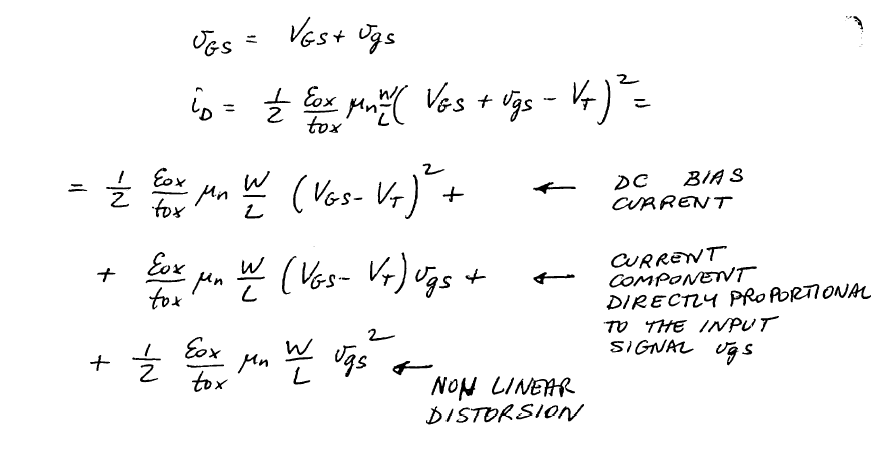 v_GS = V_GS + v_gs
i_D = 1/2 ε_ox/t_ox μ_n W/L ( V_GS + v_gs - V_T )² =
= 1/2 ε_ox/t_ox μ_n W/L ( V_GS - V_T )² + ← DC BIAS
CURRENT
+ ε_ox/t_ox μ_n W/L ( V_GS - V_T ) v_gs + ← CURRENT
COMPONENT
DIRECTLY PROPORTIONAL
TO THE INPUT
SIGNAL v_gs
+ 1/2 ε_ox/t_ox μ_n W/L v_gs² ← NON LINEAR
DISTORSION